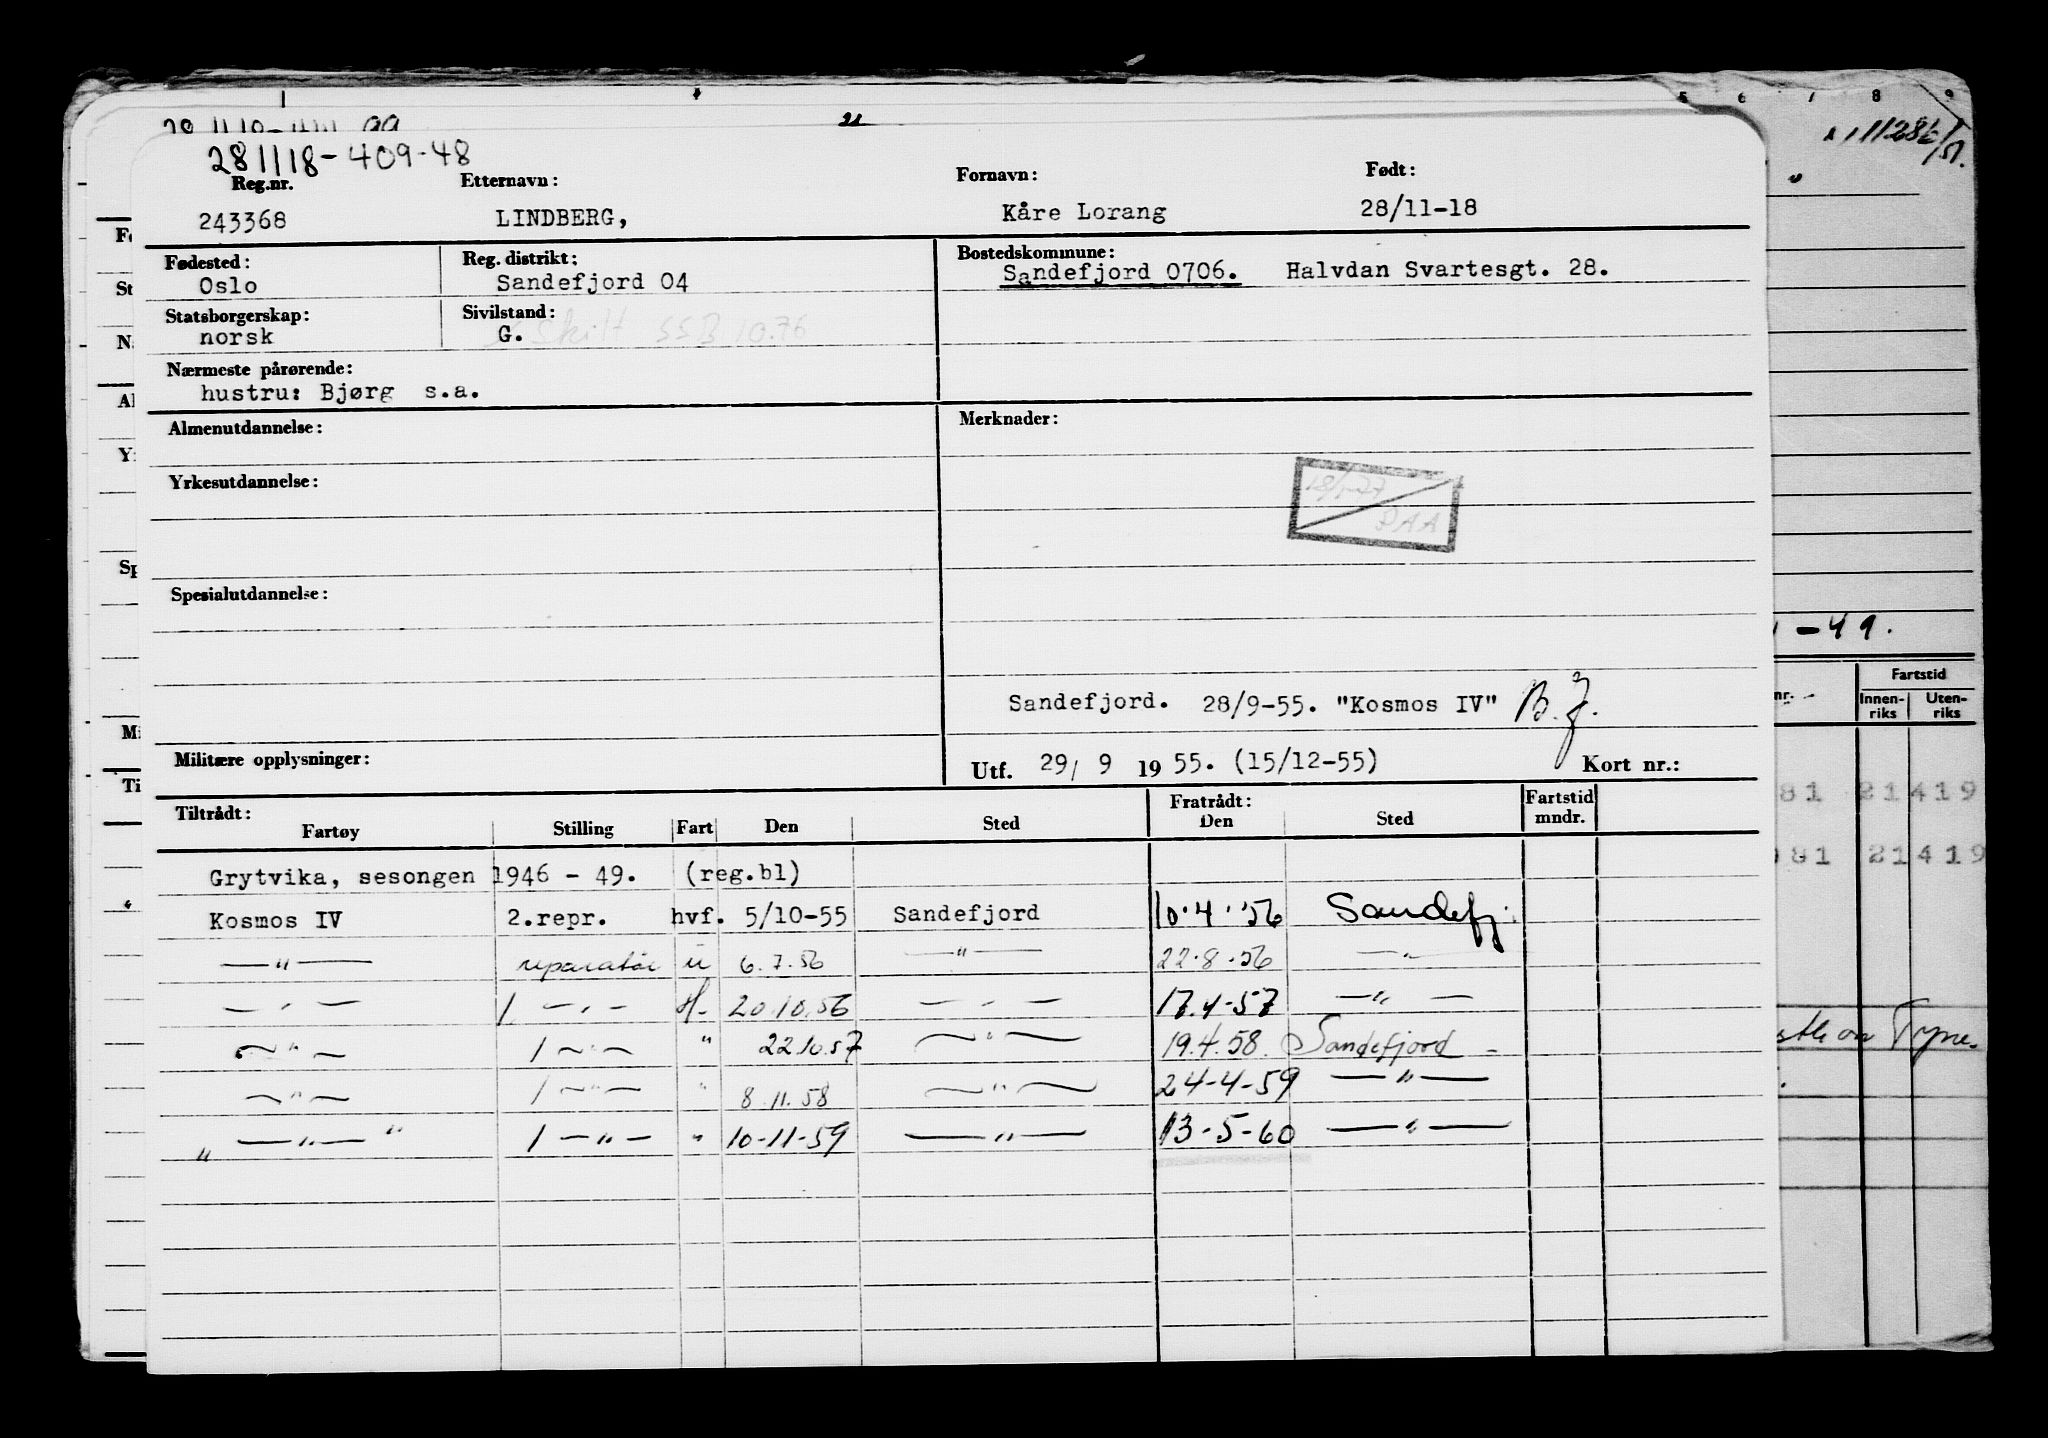 281118-409-48
Reg.nr. Etternavn: Fornavn: Født:
243368 LINDBERG, Kåre Lorang 28/11-18
Fødested: Reg. distrikt: Bostedskommune:
Oslo Sandefjord 04 Sandefjord 0706. Halvdan Svartesgt. 28.
Statsborgerskap: Sivilstand:
norsk G. Skilt SSB 10.76
Nærmeste pårørende:
hustru: Bjørg s.a.
Almenutdannelse: Merknader:
Yrkesutdannelse:
18/1-77
PAA
Spesialutdannelse:
Sandefjord. 28/9-55. "Kosmos IV" B.J.
Militære opplysninger: Utf. 29/ 9 1955. (15/12-55) Kort nr.:
Tiltrådt: Fratrådt: Fartstid
Fartøy Stilling Fart Den Sted Den Sted mndr.
Grytvika, sesongen 1946 - 49. (reg.bl)
Kosmos IV 2.repr. hvf. 5/10-55 Sandefjord 10.4.'56 Sandefj.
—"— reparatør u 6.7.56 —"— 22.8.56 —"—
—"— 1. —"— H. 20.10.56 —"— 17.4-57 —"—
—"— 1 —"— " 22.10.57 —"— 19.4.58. Sandefjord -
—"— 1 —"— " 8.11.58 —"— 24-4-59 —"—
" —"— " 1 —"— " 10-11-59 —"— 13-5-60 —"—
5 6 7 8 9
-49.
nr. Fartstid
Innen-riks Uten-riks
81 21419
981 21419
on Tyne.